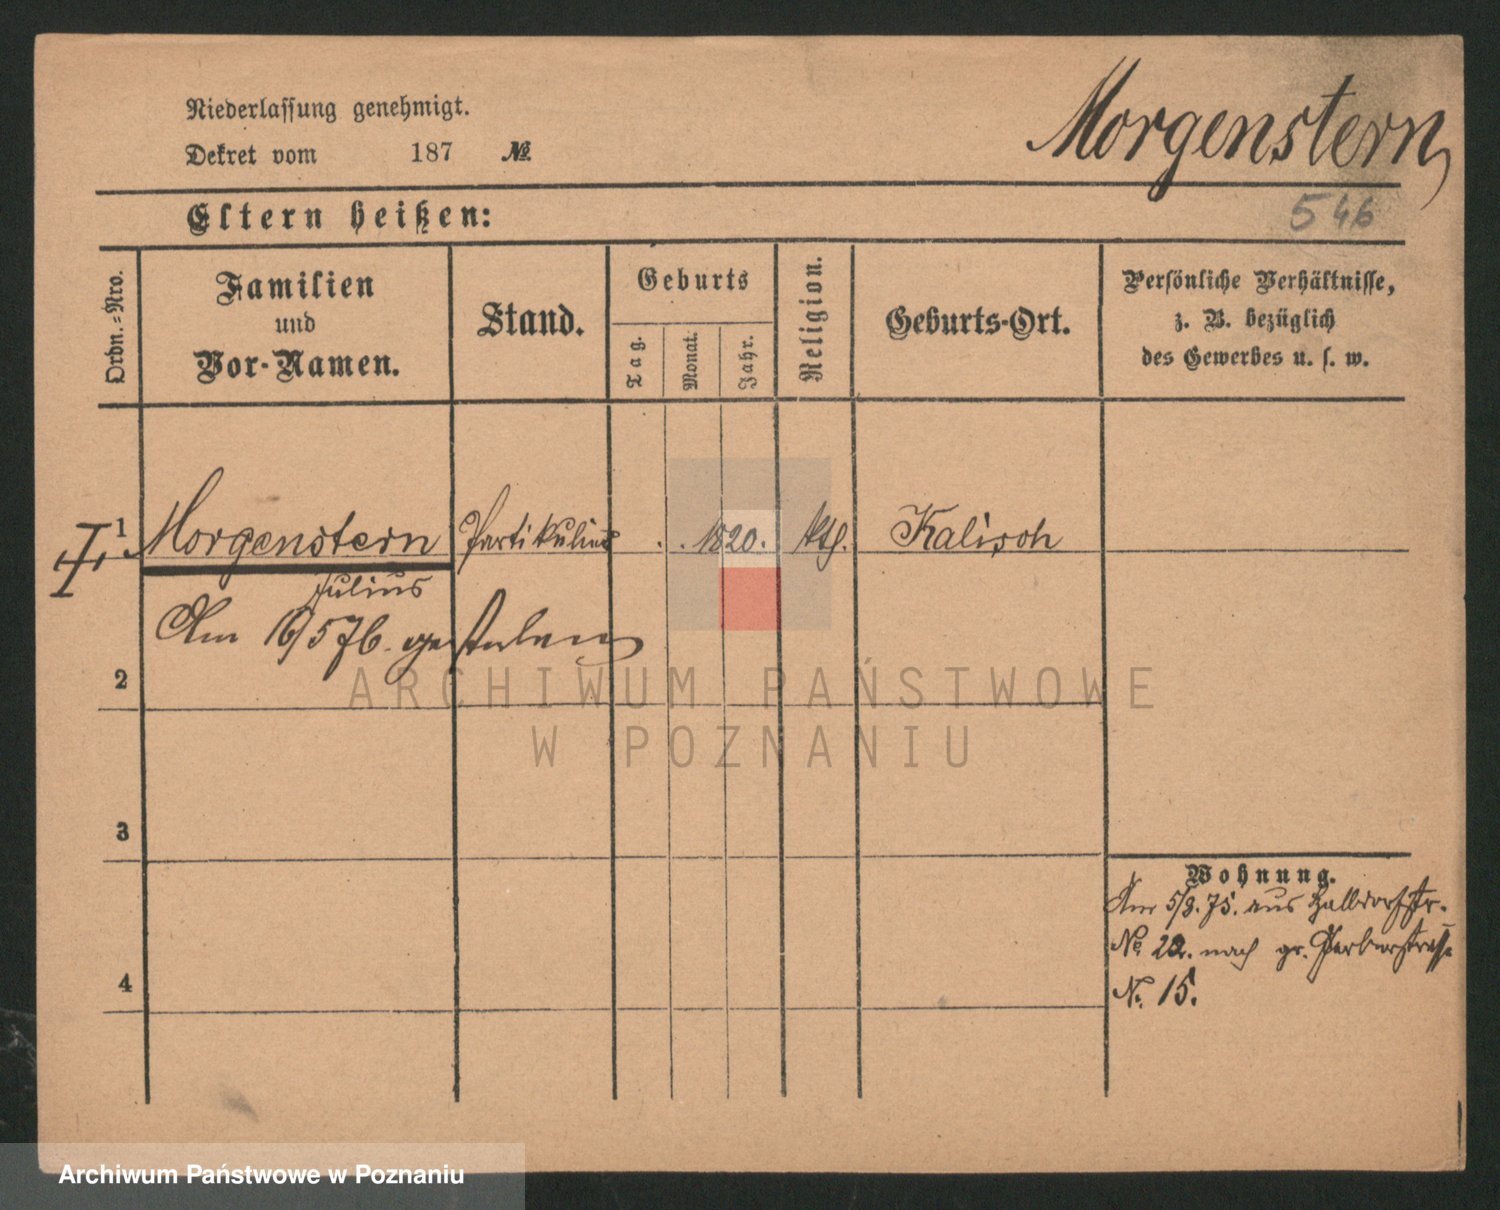 Niederlassung genehmigt.
Dekret vom 187 №
Morgenstern
546
Eltern heißen:
Ordn.-Nro.
Familien
und
Vor-Namen.
Stand.
Geburts
Tag.
Monat.
Jahr.
Religion.
Geburts-Ort.
Persönliche Verhältnisse,
z. B. bezüglich
des Gewerbes u. s. w.
1 Morgenstern 1820. Kalisch
Julius
Am 16/5 76. gestorben
2
3
4
Wohnung.
Am 5/8. 75. aus Halbdorfstr.
№ 22. nach gr. Gerberstrasse
№ 15.
ARCHIWUM PAŃSTWOWE
W POZNANIU
Archiwum Państwowe w Poznaniu